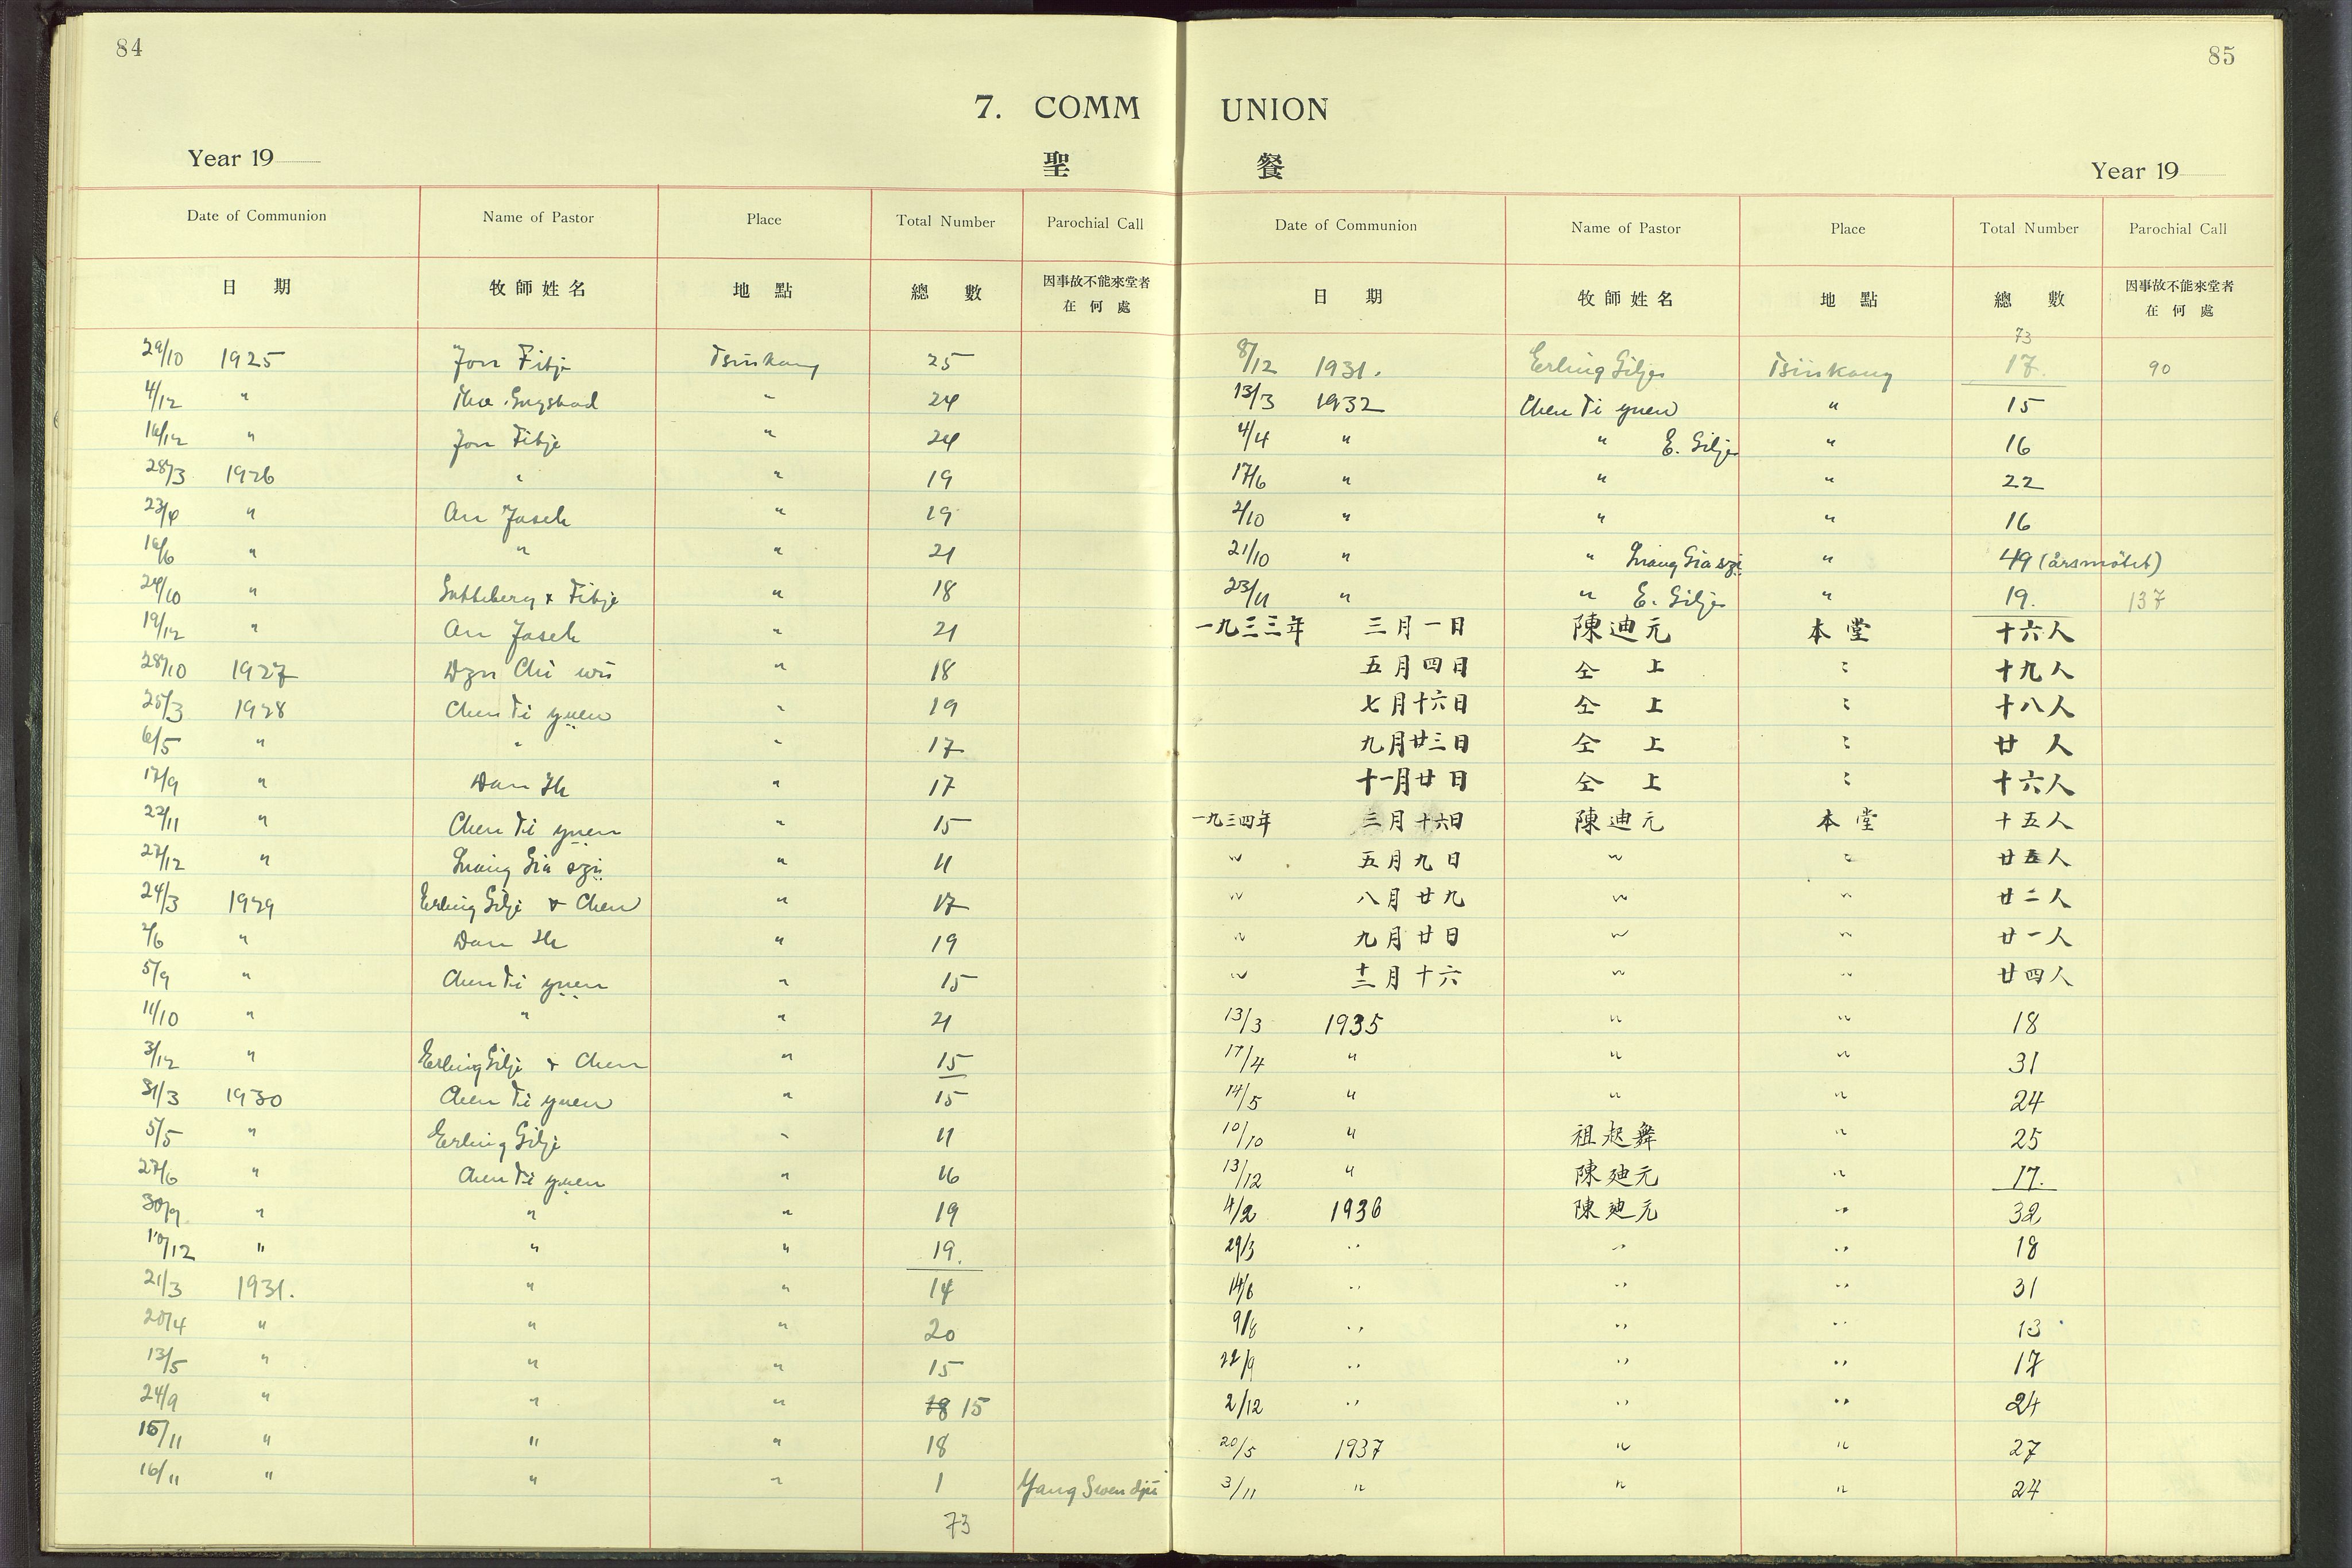 84
7. COMM
Year 19
聖
Date of Communion Name of Pastor Place Total Number Parochial Call
日 期 牧師姓名 地點 總數 因事故不能來堂者
在何處
29/10 1925 Jon Fitje Tsinkang 25
4/12 " 24
16/12 " Jon Fitje " 24
28/3 1926 " " 19
23/4 " " 19
16/6 " " " 21
24/10 " & Fitje " 18
19/12 " " 21
28/10 1927 " 18
25/3 1928 Chen Ti yuen " 19
6/5 " " " 17
17/9 " " 17
22/11 " Chen Ti yuen " 15
27/12 " " 11
24/3 1929 Erling Gilje & Chen " 17
2/6 " " 19
5/9 " Chen Ti yuen " 15
11/10 " " " 21
3/12 " Erling Gilje & Chen " 15
31/3 1930 Chen Ti yuen " 15
5/5 " Erling Gilje " 11
27/6 " Chen Ti yuen " 16
30/9 " " " 19
10/12 " " " 19.
21/3 1931. " " 14
20/4 " " " 20
13/5 " " " 15
24/9 " " " 18 15
15/11 " " " 18
16/11 " " " 1 Yang Swen djü
73
85
UNION
餐
Year 19
Date of Communion Name of Pastor Place Total Number Parochial Call
日 期 牧師姓名 地點 總數 因事故不能來堂者
在何處
73
8/12 1931. Erling Gilje Tsinkang 17. 90
13/3 1932 Chen Ti yuen " 15
4/4 " " E. Gilje " 16
17/6 " " " 22
2/10 " " " 16
21/10 " " " 49 (årsmötet)
23/11 " " E. Gilje " 19. 137
一九三三年 三月一日 陳迪元 本堂 十六人
五月四日 仝上 : 十九人
七月十六日 仝上 : 十八人
九月廿三日 仝上 : 廿人
十一月廿日 仝上 : 十六人
一九三四年 三月十六日 陳迪元 本堂 十五人
" 五月九日 " : 廿五人
" 八月廿九 " " 廿二人
" 九月廿日 " " 廿一人
" 十二月十六 " " 廿四人
13/3 1935 " " 18
17/4 " " " 31
14/5 " " " 24
10/10 " 祖起舞 " 25
13/12 " 陳廸元 " 17.
4/2 1936 陳廸元 " 32
29/3 " " " 18
14/6 " " " 31
9/8 " " " 13
22/9 " " " 17
2/12 " " " 24
20/5 1937 " " 27
3/11 " " " 24